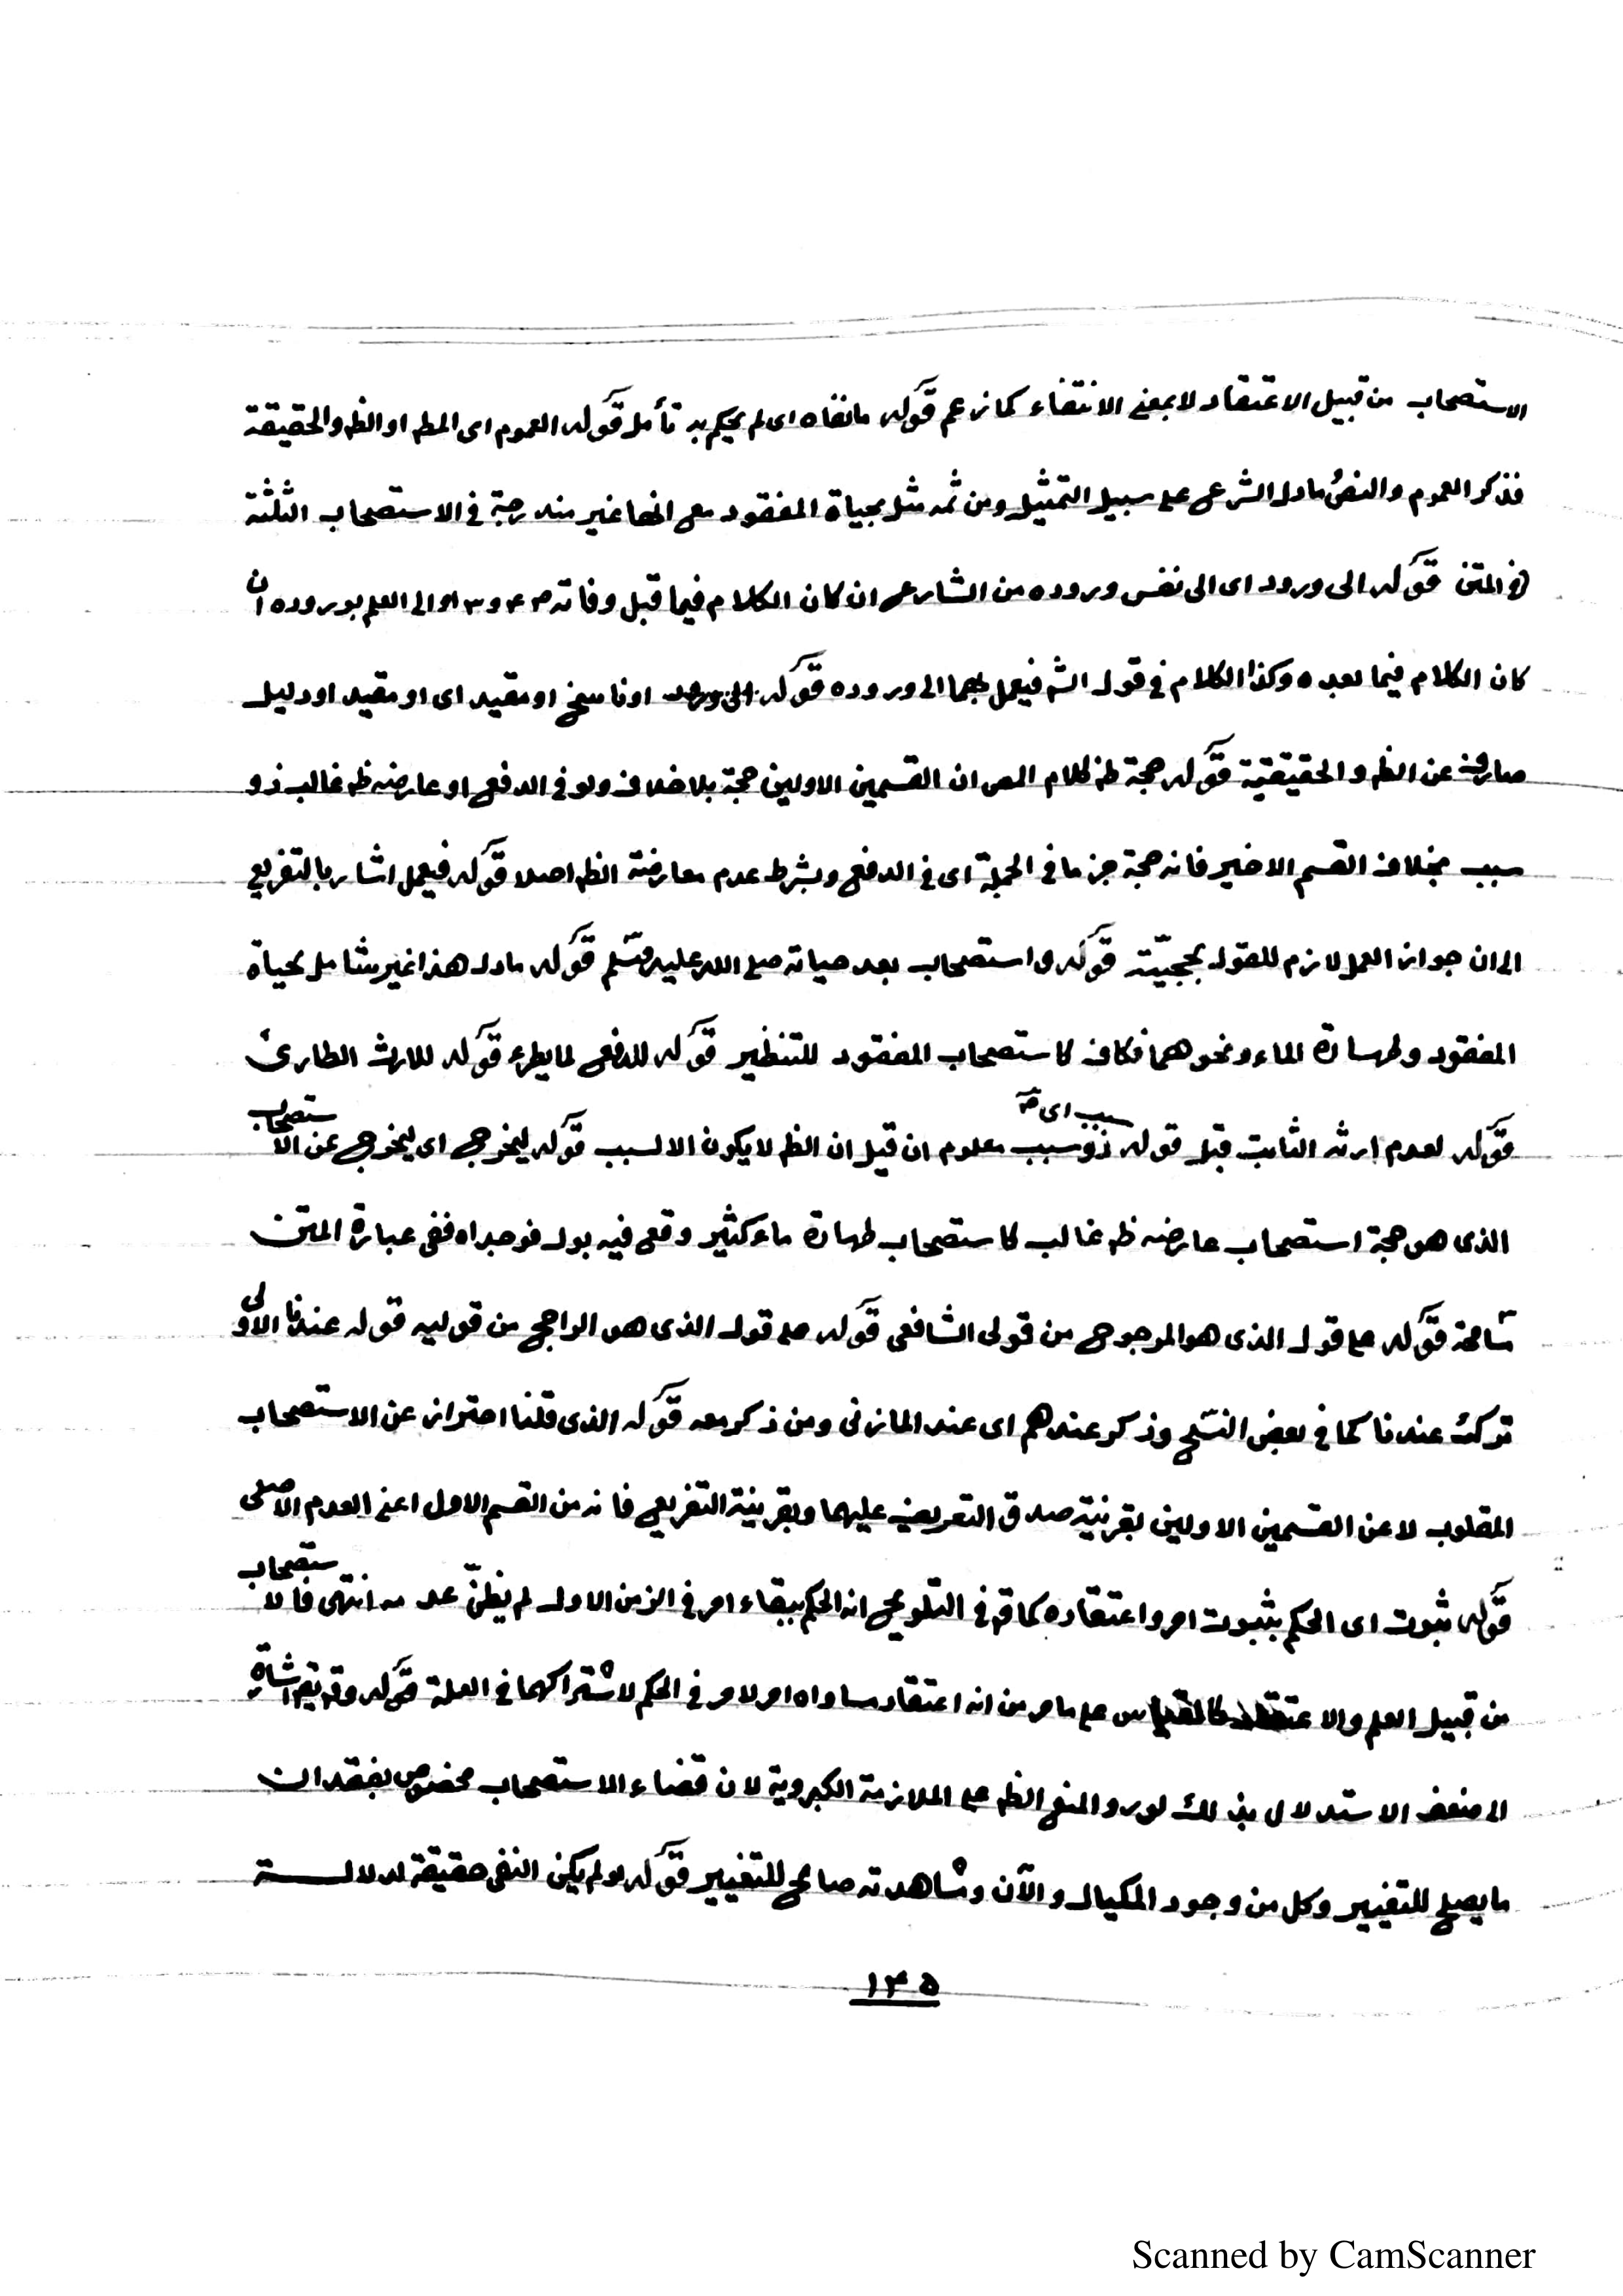 الاستصحاب من قبيل الاعتقاد لا بمعنى الانتفاء كما زعم قوله ما نفاه اى لم يحكم به تأمل قوله العموم اى المط او الظ والحقيقة
فذكر العموم والنص ما دل الشرع على سبيل التمثيل ومن ثمه مثل بحياة المفقود مع انها غير مندرجة فى الاستصحاب الثلثة
فى المتن قوله الى ورود اى الى نفس وروده من الشارع ان كان الكلام فيما قبل وفاته او الى العلم بوروده ان
كان الكلام فيما بعده وكذا الكلام فى قول الشه فيعمل بهما الى وروده قوله او ناسخ او مقيد اى او مقيد او دليل
صارف عن الظ والحقيقة قوله حجة ظ كلام المص ان القسمين الاولين حجة بلا خلاف ولو فى الدفع او عارضه ظ غالب ذو
سبب بخلاف القسم الاخير فانه حجة جزما فى الجملة اى فى الدفع وبشرط عدم معارضة الظ اصلا قوله فيعمل اشار بالتفريع
الى ان جواز العمل لازم للقول بحجيّته قوله واستصحاب بعد حياته صلى الله عليه وسّلم قوله ما دل هذا غير شامل لحياة
المفقود وطهارة الماء ونحوهما فكاف كاستصحاب المفقود للتنظير قوله للدفع لما يطرء قوله للارث الطارئ
قوله لعدم ارثه الثابت قبل قوله ذو سبب سبب اى معلوم ان قيل ان الظ لا يكون الا لسبب قوله ليخرج اى ليخرج عن الاستصحاب
الذى هو حجة استصحاب عارضه ظ غالب كاستصحاب طهارة ماء كثير وقع فيه بول فوجداه ففى عبارة المتن
مسامحة قوله على قول الذى هو المرجوح من قولى الشافعى قوله على قول الذى هو الراجح من قوليه قوله عندنا الاولى
ترك عندنا كما فى بعض النسّخ وذكر عندهم اى عند المازنى ومن ذكر معه قوله الذى قلنا احتراز عن الاستصحاب
المقلوب لا عن القسمين الاولين بقرنية صدق التعريف عليهما وبقرينية التفريع فانه من القسم الاول اعنى العدم الاصلى
قوله ثبوت اى الحكم بثبوت امر واعتقاده كما فى التلويح انه الحكم ببقاء امر فى الزمن الاول لم يظنّ عدمه انتهى فالاستصحاب
من قبيل العلم والاعتقاد كالقياس على ما مر من انه اعتقاد مساواه امر لامر فى الحكم لاشتراكهما فى العلة قوله وقد يقر اشارة
الى ضعف الاستدلال بذلك لورود المنع الظ على الملازمة الكبروية لان قضاء الاستصحاب مخصوص بفقدان
ما يصلح للتغيير وكل من وجود المكيال والآن ومشاهدته صالح للتغيير قوله لو لم يكن النفى حقيقة لدلالة
١٤٥
Scanned by CamScanner